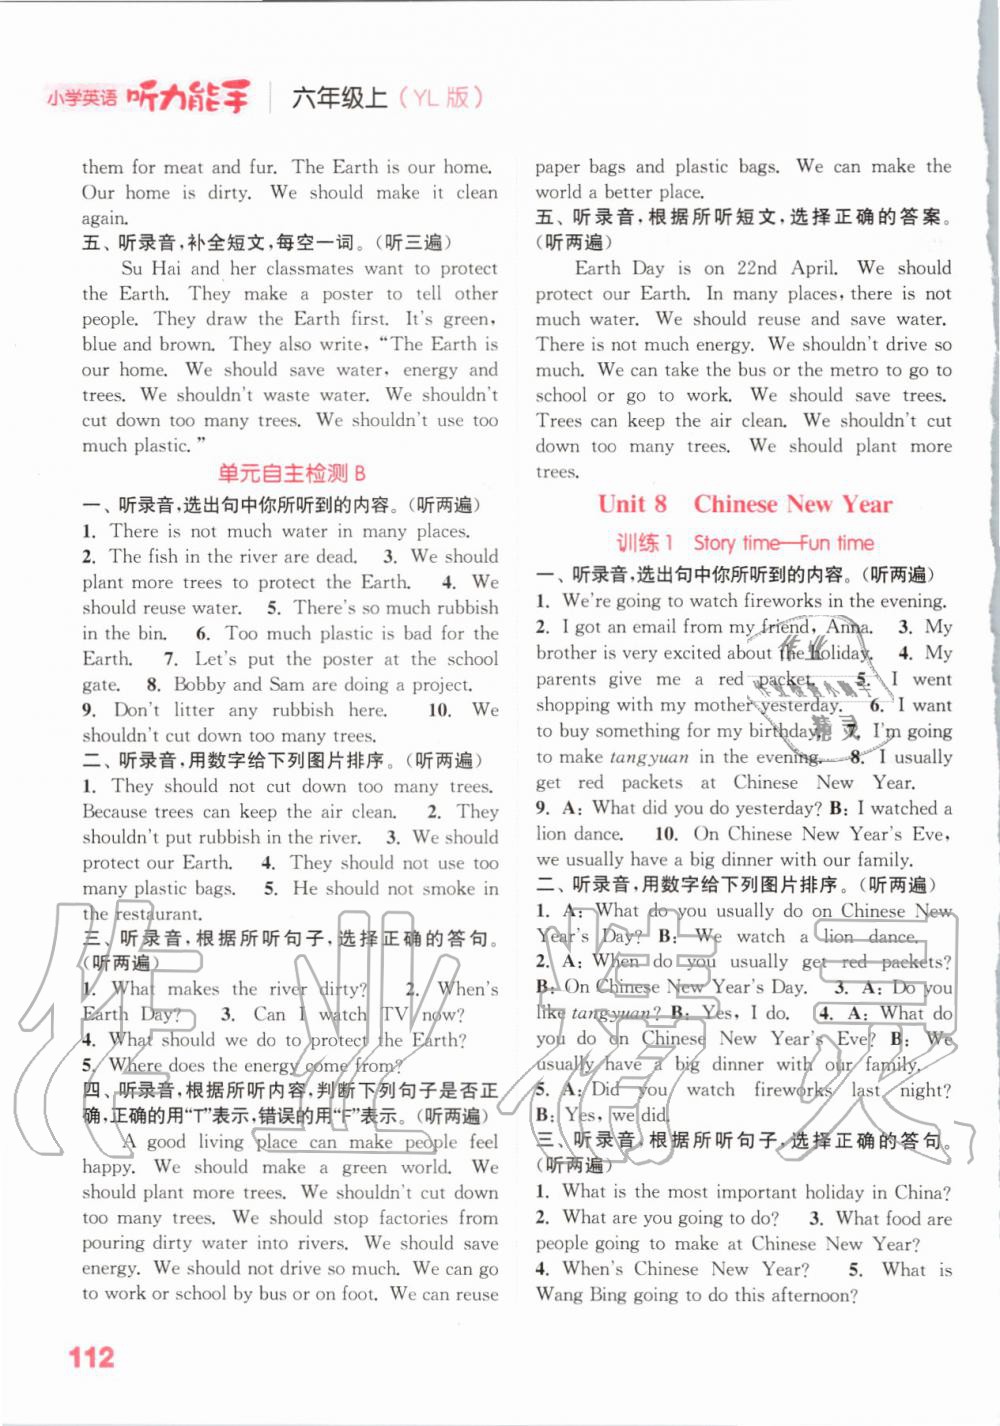 小学英语 听力能手 六年级上（YL版）
them for meat and fur. The Earth is our home.
Our home is dirty. We should make it clean
again.
五、听录音,补全短文,每空一词。（听三遍）
Su Hai and her classmates want to protect
the Earth. They make a poster to tell other
people. They draw the Earth first. It's green,
blue and brown. They also write, “The Earth is
our home. We should save water, energy and
trees. We shouldn't waste water. We shouldn't
cut down too many trees. We shouldn't use too
much plastic.”
单元自主检测 B
一、听录音,选出句中你所听到的内容。（听两遍）
1. There is not much water in many places.
2. The fish in the river are dead. 3. We should
plant more trees to protect the Earth. 4. We
should reuse water. 5. There's so much rubbish
in the bin. 6. Too much plastic is bad for the
Earth. 7. Let's put the poster at the school
gate. 8. Bobby and Sam are doing a project.
9. Don't litter any rubbish here. 10. We
shouldn't cut down too many trees.
二、听录音,用数字给下列图片排序。（听两遍）
1. They should not cut down too many trees.
Because trees can keep the air clean. 2. They
shouldn't put rubbish in the river. 3. We should
protect our Earth. 4. They should not use too
many plastic bags. 5. He should not smoke in
the restaurant.
三、听录音,根据所听句子,选择正确的答句。
（听两遍）
1. What makes the river dirty? 2. When's
Earth Day? 3. Can I watch TV now?
4. What should we do to protect the Earth?
5. Where does the energy come from?
四、听录音,根据所听内容,判断下列句子是否正
确,正确的用“T”表示,错误的用“F”表示。（听两遍）
A good living place can make people feel
happy. We should make a green world. We
should plant more trees. We shouldn't cut down
too many trees. We should stop factories from
pouring dirty water into rivers. We should save
energy. We should not drive so much. We can go
to work or school by bus or on foot. We can reuse
paper bags and plastic bags. We can make the
world a better place.
五、听录音,根据所听短文,选择正确的答案。
（听两遍）
Earth Day is on 22nd April. We should
protect our Earth. In many places, there is not
much water. We should reuse and save water.
There is not much energy. We shouldn't drive so
much. We can take the bus or the metro to go to
school or go to work. We should save trees.
Trees can keep the air clean. We shouldn't cut
down too many trees. We should plant more
trees.
Unit 8 Chinese New Year
训练1 Story time—Fun time
一、听录音,选出句中你所听到的内容。（听两遍）
1. We're going to watch fireworks in the evening.
2. I got an email from my friend, Anna. 3. My
brother is very excited about the holiday. 4. My
parents give me a red packet. 5. I went
shopping with my mother yesterday. 6. I want
to buy something for my birthday. 7. I'm going
to make tangyuan in the evening. 8. I usually
get red packets at Chinese New Year.
9. A: What did you do yesterday? B: I watched a
lion dance. 10. On Chinese New Year's Eve,
we usually have a big dinner with our family.
二、听录音,用数字给下列图片排序。（听两遍）
1. A: What do you usually do on Chinese New
Year's Day? B: We watch a lion dance.
2. A: When do you usually get red packets?
B: On Chinese New Year's Day. 3. A: Do you
like tangyuan? B: Yes, I do. 4. A: What do
you do on Chinese New Year's Eve? B: We
usually have a big dinner with our family.
5. A: Did you watch fireworks last night?
B: Yes, we did.
三、听录音,根据所听句子,选择正确的答句。
（听两遍）
1. What is the most important holiday in China?
2. What are you going to do? 3. What food are
people going to make at Chinese New Year?
4. When's Chinese New Year? 5. What is
Wang Bing going to do this afternoon?
112
作业精灵